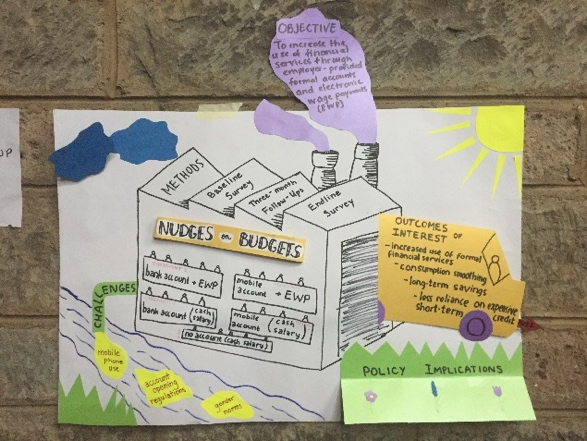 OBJECTIVE
To increase the
use of financial
services through
employer-provided
formal accounts
and electronic
wage payments
(EWP)
METHODS
Baseline
Survey
Three-month
Follow-Ups
Endline
Survey
NUDGES on BUDGETS
bank account + EWP
mobile
account + EWP
bank account (cash
salary)
mobile
account (cash
salary)
no account (cash salary)
OUTCOMES OF
INTEREST
- increased use of formal
financial services
- consumption smoothing
- long-term savings
- less reliance on expensive
short-term credit
CHALLENGES
mobile
phone
use
account
opening
regulations
gender
norms
POLICY IMPLICATIONS